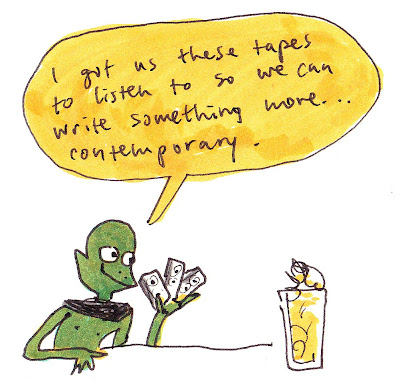 I got us these tapes
to listen to so we can
write something more...
contemporary.